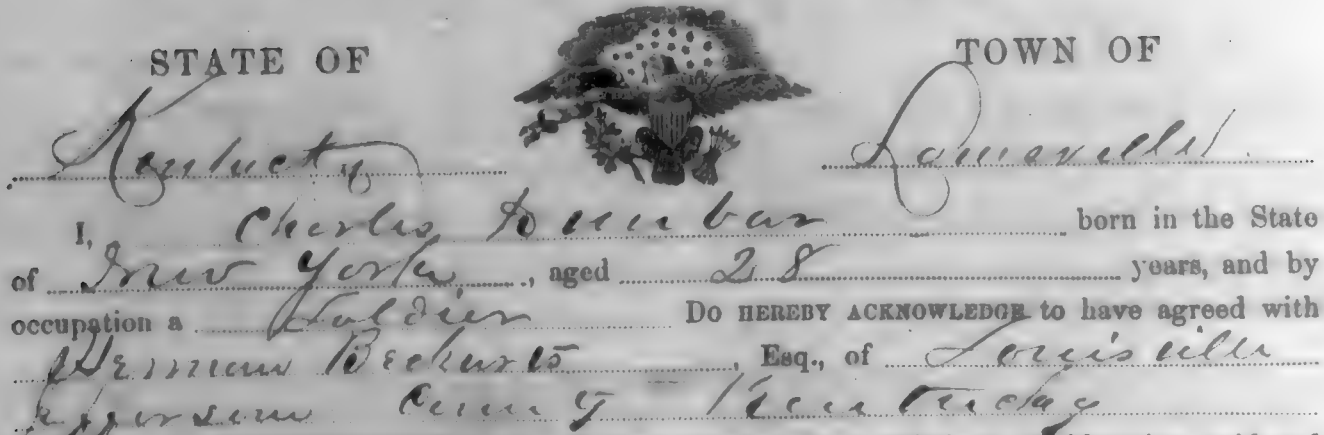 STATE OF TOWN OF
Kentucky Louisville
I, Charles Dunbar born in the State
of New York, aged 28 years, and by
occupation a Soldier Do HEREBY ACKNOWLEDGE to have agreed with
Herman Beckurts, Esq., of Louisville
Jefferson County Kentucky